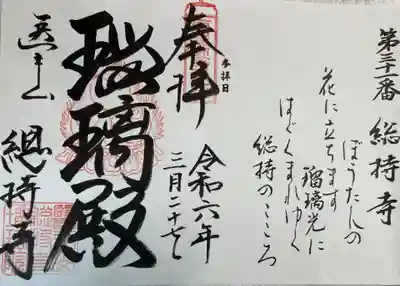 第三十一番 総持寺
ぼうたんの
花に立ちます
瑠璃光に
はぐくまれゆく
総持のこころ
参拝日
奉拝
令和六年
三月二十七日
瑠璃殿
医王山
總持寺